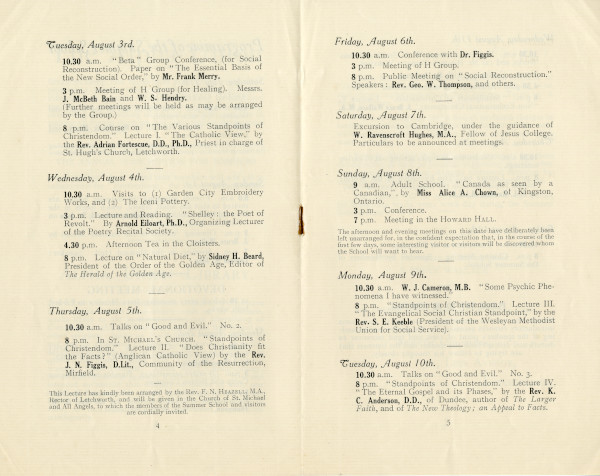 Tuesday, August 3rd.
10.30 a.m. "Beta" Group Conference, (for Social
Reconstruction). Paper on "The Essential Basis of
the New Social Order," by Mr. Frank Merry.
3 p.m. Meeting of H Group (for Healing). Messrs.
J. McBeth Bain and W. S. Hendry.
(Further meetings will be held as may be arranged
by the Group.)
8 p.m. Course on "The Various Standpoints of
Christendom." Lecture I. "The Catholic View," by
the Rev. Adrian Fortescue, D.D., Ph.D., Priest in charge of
St. Hugh's Church, Letchworth.
Wednesday, August 4th.
10.30 a.m. Visits to (1) Garden City Embroidery
Works, and (2) The Iceni Pottery.
3 p.m. Lecture and Reading. "Shelley: the Poet of
Revolt." By Arnold Eiloart, Ph.D., Organizing Lecturer
of the Poetry Recital Society.
4.30 p.m. Afternoon Tea in the Cloisters.
8 p.m. Lecture on "Natural Diet," by Sidney H. Beard,
President of the Order of the Golden Age, Editor of
The Herald of the Golden Age.
Thursday, August 5th.
10.30 a.m. Talks on "Good and Evil." No. 2.
8 p.m. In St. Michael's Church. "Standpoints of
Christendom." Lecture II. "Does Christianity fit
the Facts?" (Anglican Catholic View) by the Rev.
J. N. Figgis, D.Lit., Community of the Resurrection,
Mirfield.
This Lecture has kindly been arranged by the Rev. F. N. Heazell, M.A.,
Rector of Letchworth, and will be given in the Church of St. Michael
and All Angels, to which the members of the Summer School and visitors
are cordially invited.
4
Friday, August 6th.
10.30 a.m. Conference with Dr. Figgis.
3 p.m. Meeting of H Group.
8 p.m. Public Meeting on "Social Reconstruction."
Speakers: Rev. Geo. W. Thompson, and others.
Saturday, August 7th.
Excursion to Cambridge, under the guidance of
W. Ravenscroft Hughes, M.A., Fellow of Jesus College.
Particulars to be announced at meetings.
Sunday, August 8th.
9 a.m. Adult School. "Canada as seen by a
Canadian," by Miss Alice A. Chown, of Kingston,
Ontario.
3 p.m. Conference.
7 p.m. Meeting in the Howard Hall.
The afternoon and evening meetings on this date have deliberately been
left unarranged for, in the confident expectation that, in the course of the
first few days, some interesting visitor or visitors will be discovered whom
the School will want to hear.
Monday, August 9th.
10.30 a.m. W. J. Cameron, M.B. "Some Psychic Phe-
nomena I have witnessed."
8 p.m. "Standpoints of Christendom." Lecture III.
"The Evangelical Social Christian Standpoint," by the
Rev. S. E. Keeble (President of the Wesleyan Methodist
Union for Social Service).
Tuesday, August 10th.
10.30 a.m. Talks on "Good and Evil." No. 3.
8 p.m. "Standpoints of Christendom." Lecture IV.
"The Eternal Gospel and its Phases," by the Rev. K.
C. Anderson, D.D., of Dundee, author of The Larger
Faith, and of The New Theology; an Appeal to Facts.
5